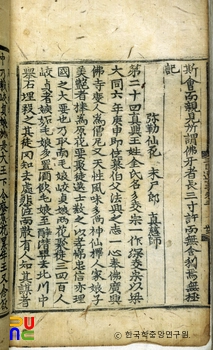 斯會而親見所謂佛牙者長三寸許而無舍利焉無極
記
彌勒仙花 未尸郎 真慈師
第二十四真興王姓金氏名彡麥宗一作深麥宗以梁
大同六年庚申即位慕伯父法興之志一心奉佛廣興
佛寺度人為僧尼又天性風味多尚神仙擇人家娘子
美艶者捧為原花要聚徒選士教之以孝悌忠信亦理
國之大要也乃取南毛娘峧貞娘兩花聚徒三四百人
峧貞者嫉妬毛娘多置酒飲毛娘至醉潜舁去北川中
舉石埋殺之其徒罔知去處悲泣而散有人知其謀者
한국학중앙연구원